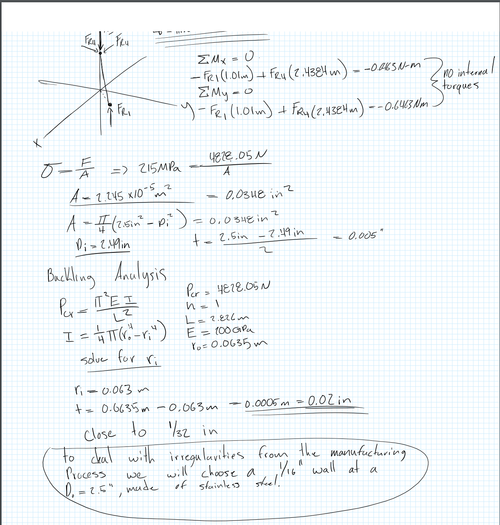 FR4 FR4
ΣMx = 0
-FR1(1.01m) + FR4(2.4384m) = -0.263N-m
ΣMy = 0
-FR1(1.01m) + FR4(2.4384m) = -0.6463Nm
no internal torques
FR1
y
x
σ = F/A => 215MPa = 4828.05N/A
A = 2.245 x10^-5 m^2 = 0.0348 in^2
A = π/4 (2.5in^2 - Di^2) = 0.0348 in^2
Di = 2.49in t = (2.5in - 2.49in)/2 = 0.005"
Buckling Analysis
Pcr = π^2 E I / L^2
I = 1/4 π(ro^4 - ri^4)
solve for ri
Pcr = 4828.05N
n = 1
L = 2.826m
E = 200GPa
ro = 0.0635m
ri = 0.063 m
t = 0.0635m - 0.063m = 0.0005m = 0.02 in
Close to 1/32 in
to deal with irregularities from the manufacturing
Process we will choose a 1/16" wall at a
Do = 2.5", made of stainless steel.